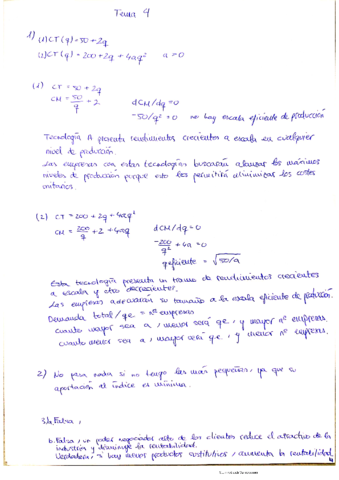 Tema 4
1) (1) CT(q) = 50 + 2q
(2) CT(q) = 200 + 2q + 4aq² a = 0
(1) CT = 50 + 2q
CM = 50/q + 2 dCM/dq = 0
-50/q² = 0 no hay escala eficiente de producción
Tecnología A presenta rendimientos crecientes a escala en cualquier
nivel de producción.
Las empresas con estas tecnologías buscarán alcanzar los máximos
niveles de producción porque esto les permitirá minimizar los costes
unitarios.
(2) CT = 200 + 2q + 4aq²
CM = 200/q + 2 + 4aq dCM/dq = 0
-200/q² + 4a = 0
q eficiente = √50/a
Esta tecnología presenta un tramo de rendimientos crecientes
a escala y otro decrecientes.
Las empresas adecuarán su tamaño a la escala eficiente de producción.
Demanda total/qe = nº empresas
cuanto mayor sea a, menor será qe, y mayor nº empresas
cuanto menor sea a, mayor será qe, y menor nº empresas.
2) No pasa nada si no tengo las más pequeñas, ya que su
aportación al índice es mínima.
3. a. Falsa,
b. Falsa, un poder negociador alto de los clientes reduce el atractivo de la
industria y disminuye la rentabilidad.
Verdadera, si hay menos productos sustitutivos, aumenta la rentabilidad.